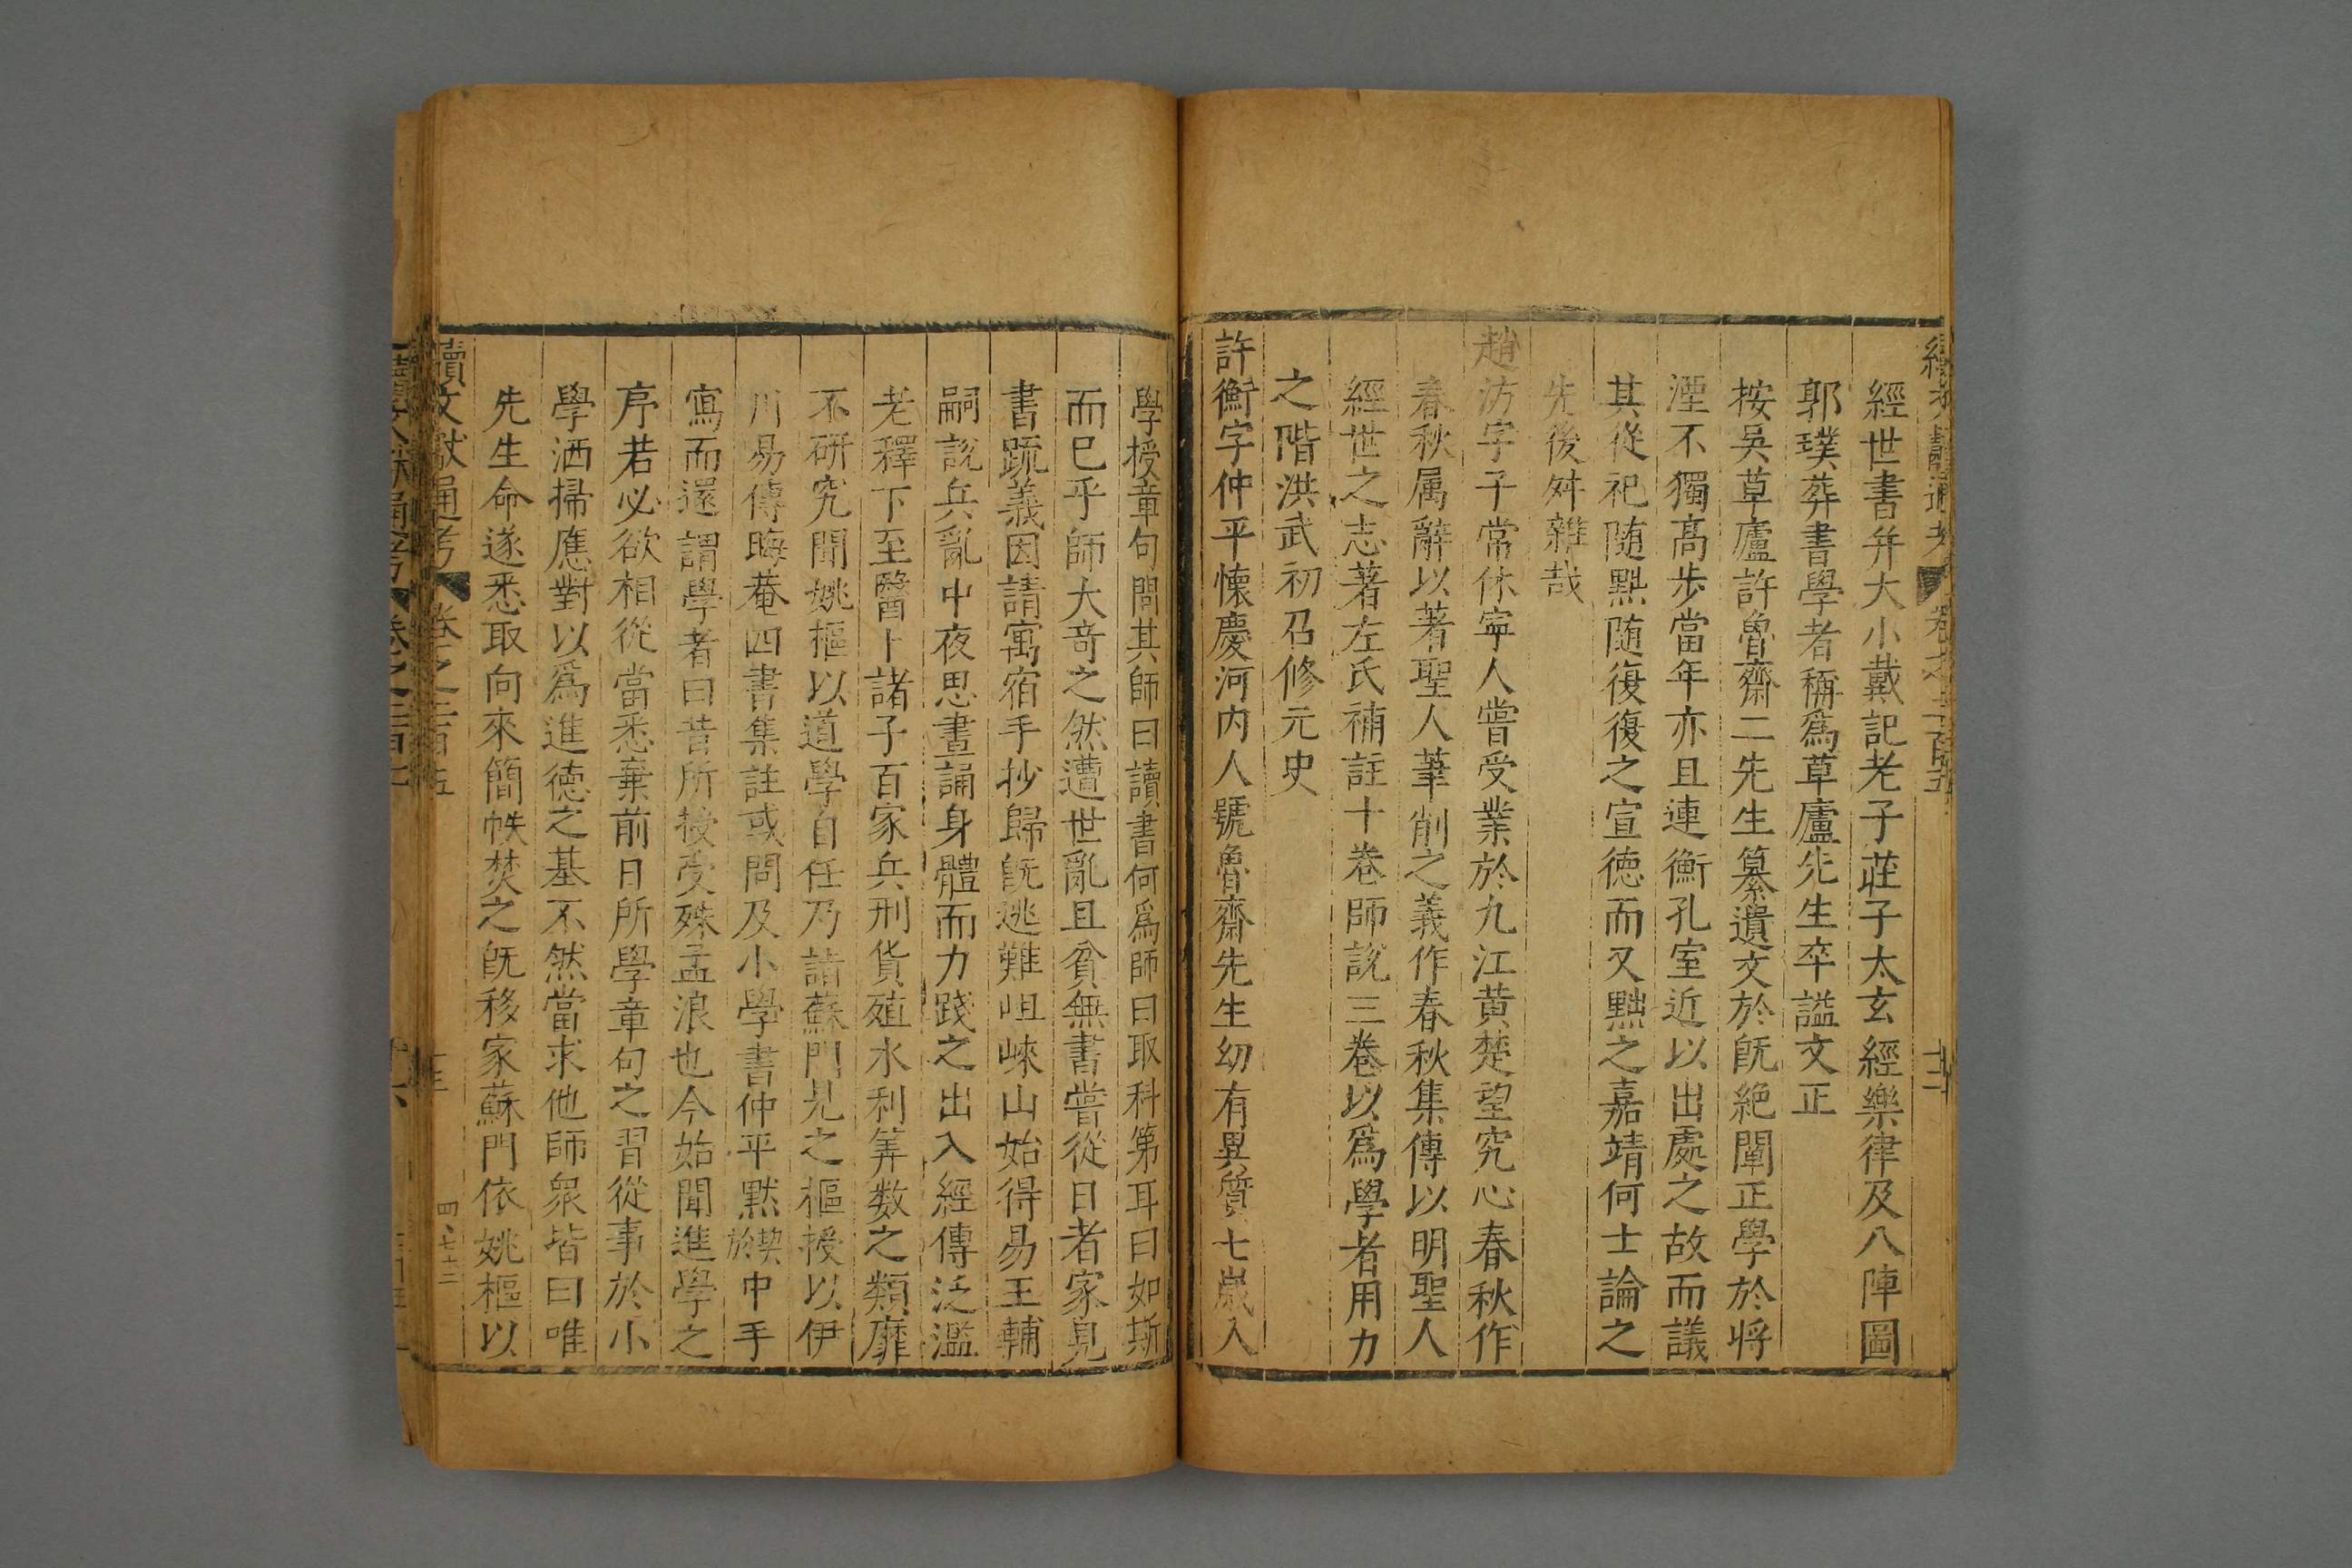 經世書并大小戴記老子莊子太玄經樂律及八陣圖
郭璞葬書學者稱爲草廬先生卒謚文正
按吳草廬許魯齋二先生纂遺文於旣絶闡正學於將
湮不獨髙步當年亦且連衡孔室近以出處之故而議
其從祀随㸃随復復之宣徳而又黜之嘉靖何士論之
先後舛雜哉
趙汸字子常休寧人嘗受業於九江黄楚望究心春秋作
春秋属辭以著聖人筆削之義作春秋集傳以明聖人
經世之志著左氏補註十卷師說三卷以爲學者用力
之階洪武初召修元史
許衡字仲平懷慶河内人號魯齋先生幼有異質七歲入
學授章句問其師曰讀書何爲師曰取科第耳曰如斯
而巳乎師大竒之然遭世亂且貧無書嘗從日者家見
書疏義因請寓宿手抄歸旣逃難岨崍山始得易王輔
嗣說兵亂中夜思晝誦身體而力踐之出入經傳泛濫
老釋下至醫卜諸子百家兵刑貨殖水利筭数之類靡
不研究聞姚樞以道學自任乃詣蘇門見之樞授以伊
川易傳晦菴四書集註或問及小學書仲平黙契於中手
寫而還謂學者曰昔所授受殊孟浪也今始聞進學之
序若必欲相從當悉棄前日所學章句之習從事於小
學洒掃應對以爲進徳之基不然當求他師衆皆曰唯
先生命遂悉取向來簡帙焚之旣移家蘇門依姚樞以
續文獻通考 卷之二百五
四七三